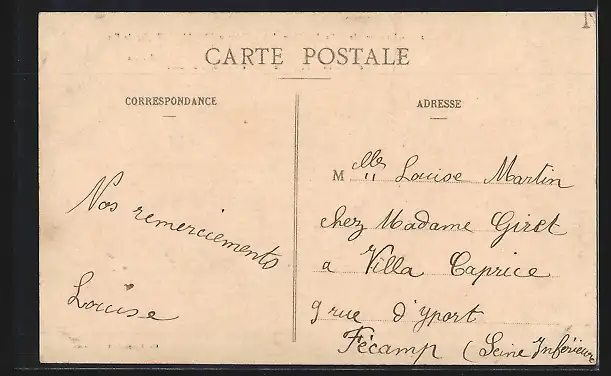 CARTE POSTALE
CORRESPONDANCE
ADRESSE
Nos remerciements
Louise
Melles Louise Martin
chez Madame Giret
a Villa Caprice
9 rue d'yport
Fécamp (Seine Inférieure